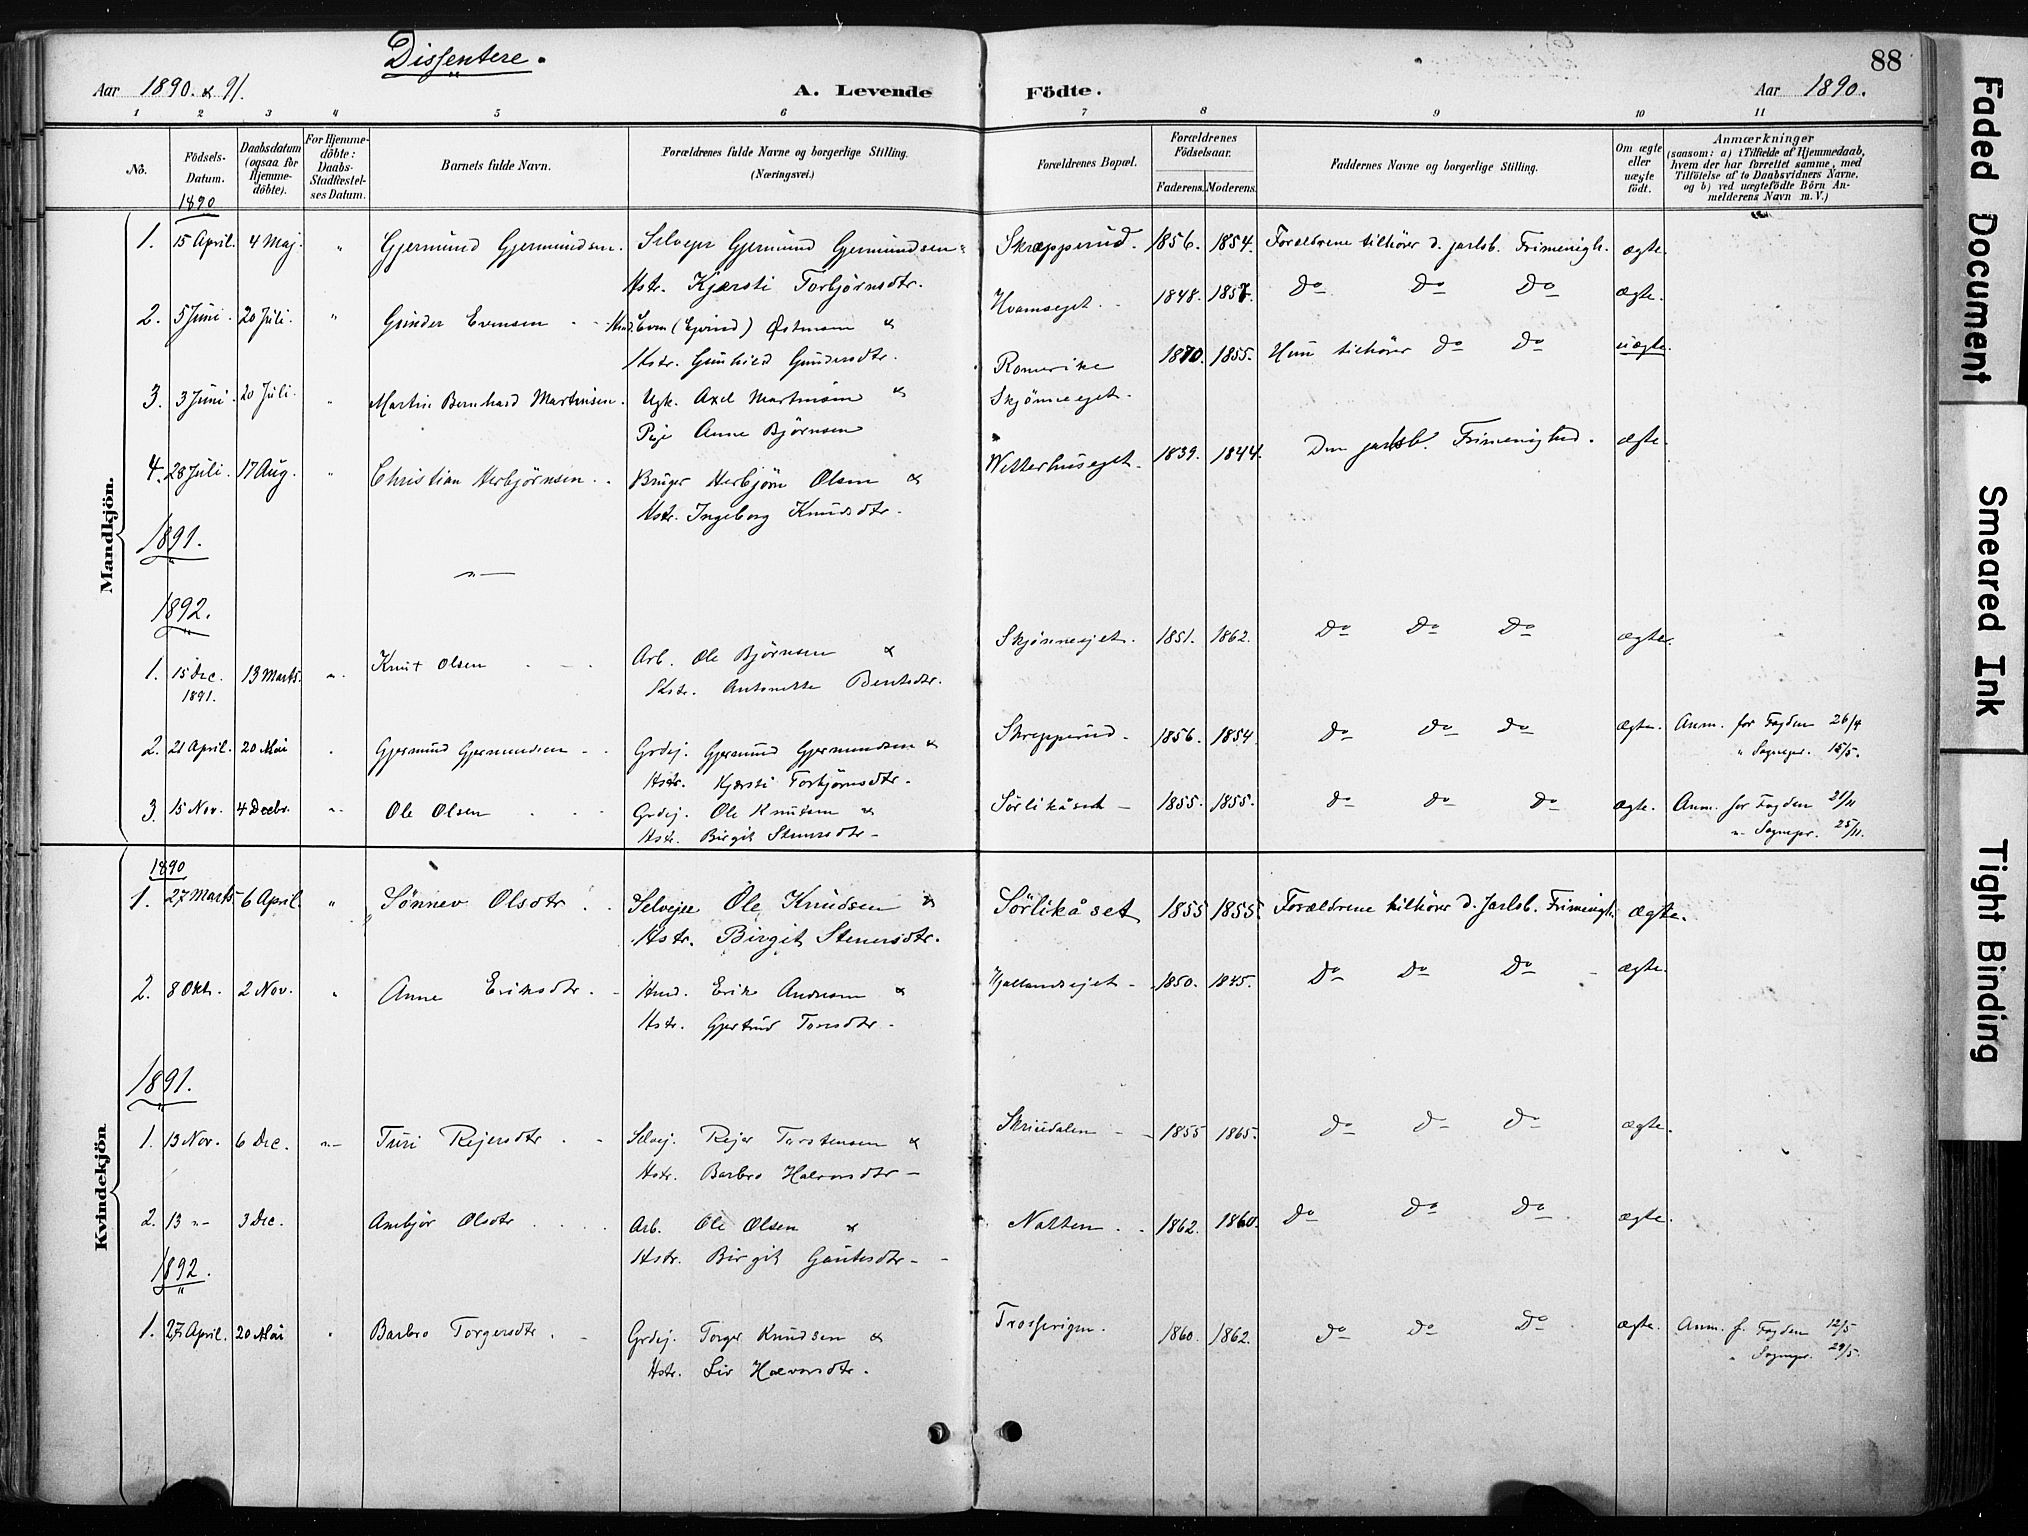 Dissentere.
88
Aar 1890 & 91.
A. Levende
Födte.
Aar 1890.
1 2 3 4 5 6 7 8 9 10 11
No.
Födsels-Datum.
Daabsdatum (ogsaa for Hjemme-döbte).
For Hjemme-döbte: Daabs-Stadfæstel-ses Datum.
Barnets fulde Navn.
Forældrenes fulde Navne og borgerlige Stilling.
(Næringsvei.)
Forældrenes Bopæl.
Forældrenes Födselsaar.
Faderens. Moderens.
Faddernes Navne og borgerlige Stilling.
Om ægte eller uægte födt.
Anmærkninger
(saasom: a) i Tilfælde af Hjemmedaab,
hvem der har forrettet samme, med
Tilföielse af to Daabsvidners Navne.
og b) ved uægtefödte Börn An-
melderens Navn m. V.)
Mandkjön.
1890
1. 15 April. 4 Maj. " Gjermund Gjermundsen. Selvejer Gjermund Gjermundsen & Skrapperud. 1856. 1854. Forældrene tilhører d. jarlsb. Frimenigh. ægte.
Hstr. Kjersti Torbjørnsdtr.
2. 5 Juni. 20 Juli. " Gunder Evensen Hmd. Even (Eivind) Østensen & Hvamseget. 1848. 1857. Do Do Do ægte.
Hstr. Gunhild Gundersdtr.
3. 3 Juni. 20 Juli. " Martin Bernhard Martinsen. Ugk. Axel Martinsen & Romerike 1870. 1855. Hun tilhører Do Do uægte.
Pige Anne Bjørnsen Skjønneeget.
4. 28 Juli. 17 Aug. " Christian Herbjørnsen. Bruger Herbjørn Olsen & Wetterhuseget. 1839. 1844. Den jarlsb. Frimenighed. ægte.
Hstr. Ingeborg Knudsdtr.
1891.
— " —
1892.
1. 15 Dec. 1891. 13 Marts. " Knut Olsen Arb. Ole Bjørnsen & Skjønneejet. 1851. 1862. Do Do Do ægte.
Hstr. Antonette Bentsdtr.
2. 21 April. 20 Mai " Gjermund Gjermundsen Grdej. Gjermund Gjermundsen & Skrapperud. 1856. 1854. Do Do Do ægte. Anm. for Fogden 26/4
Hstr. Kjersti Torbjørnsdtr. " Sognepr. 15/5.
3. 15 Nov. 4 Decbr. " Ole Olsen Grdej. Ole Knudsen & Sørlikåset 1855. 1855. Do Do Do ægte. Anm. for Fogden 21/11
Hstr. Birgit Stenersdtr " Sognepr. 25/11.
Kvindekjön
1890
1. 27 Marts 6 April. " Sønnev Olsdtr Selvejer Ole Knudsen & Sørlikåset 1855 1855. Forældrene tilhører d. Jarlsb. Frimenigh. ægte.
Hstr. Birgit Stenersdtr.
2. 8 Okt. 2 Nov. " Anne Eriksdtr. Hmd. Erik Andersen & Hjallandsejet 1850. 1845. Do Do Do ægte.
Hstr. Gjertrud Torsdtr.
1891.
1. 13 Nov. 6 Dec. " Turi Rejersdtr. Selvej. Rejer Torstensen & Skriudalen 1855 1865. Do Do Do ægte.
Hstr. Barbro Halvorsdtr
2. 13 " 3 Dec. Ambjør Olsdtr Arb. Ole Olsen & Natten 1862. 1860. Do Do Do ægte.
Hstr. Birgit Gautesdtr
1892.
1. 27 April. 20 Mai " Barbro Torgersdtr. Grdej. Torger Knudsen & 1860. 1862. Do Do Do ægte. Anm. f. Fogden 12/5
Hstr. Liv Halvorsdtr. " Sognepr. 29/5.
Faded Document
Smeared Ink
Tight Binding